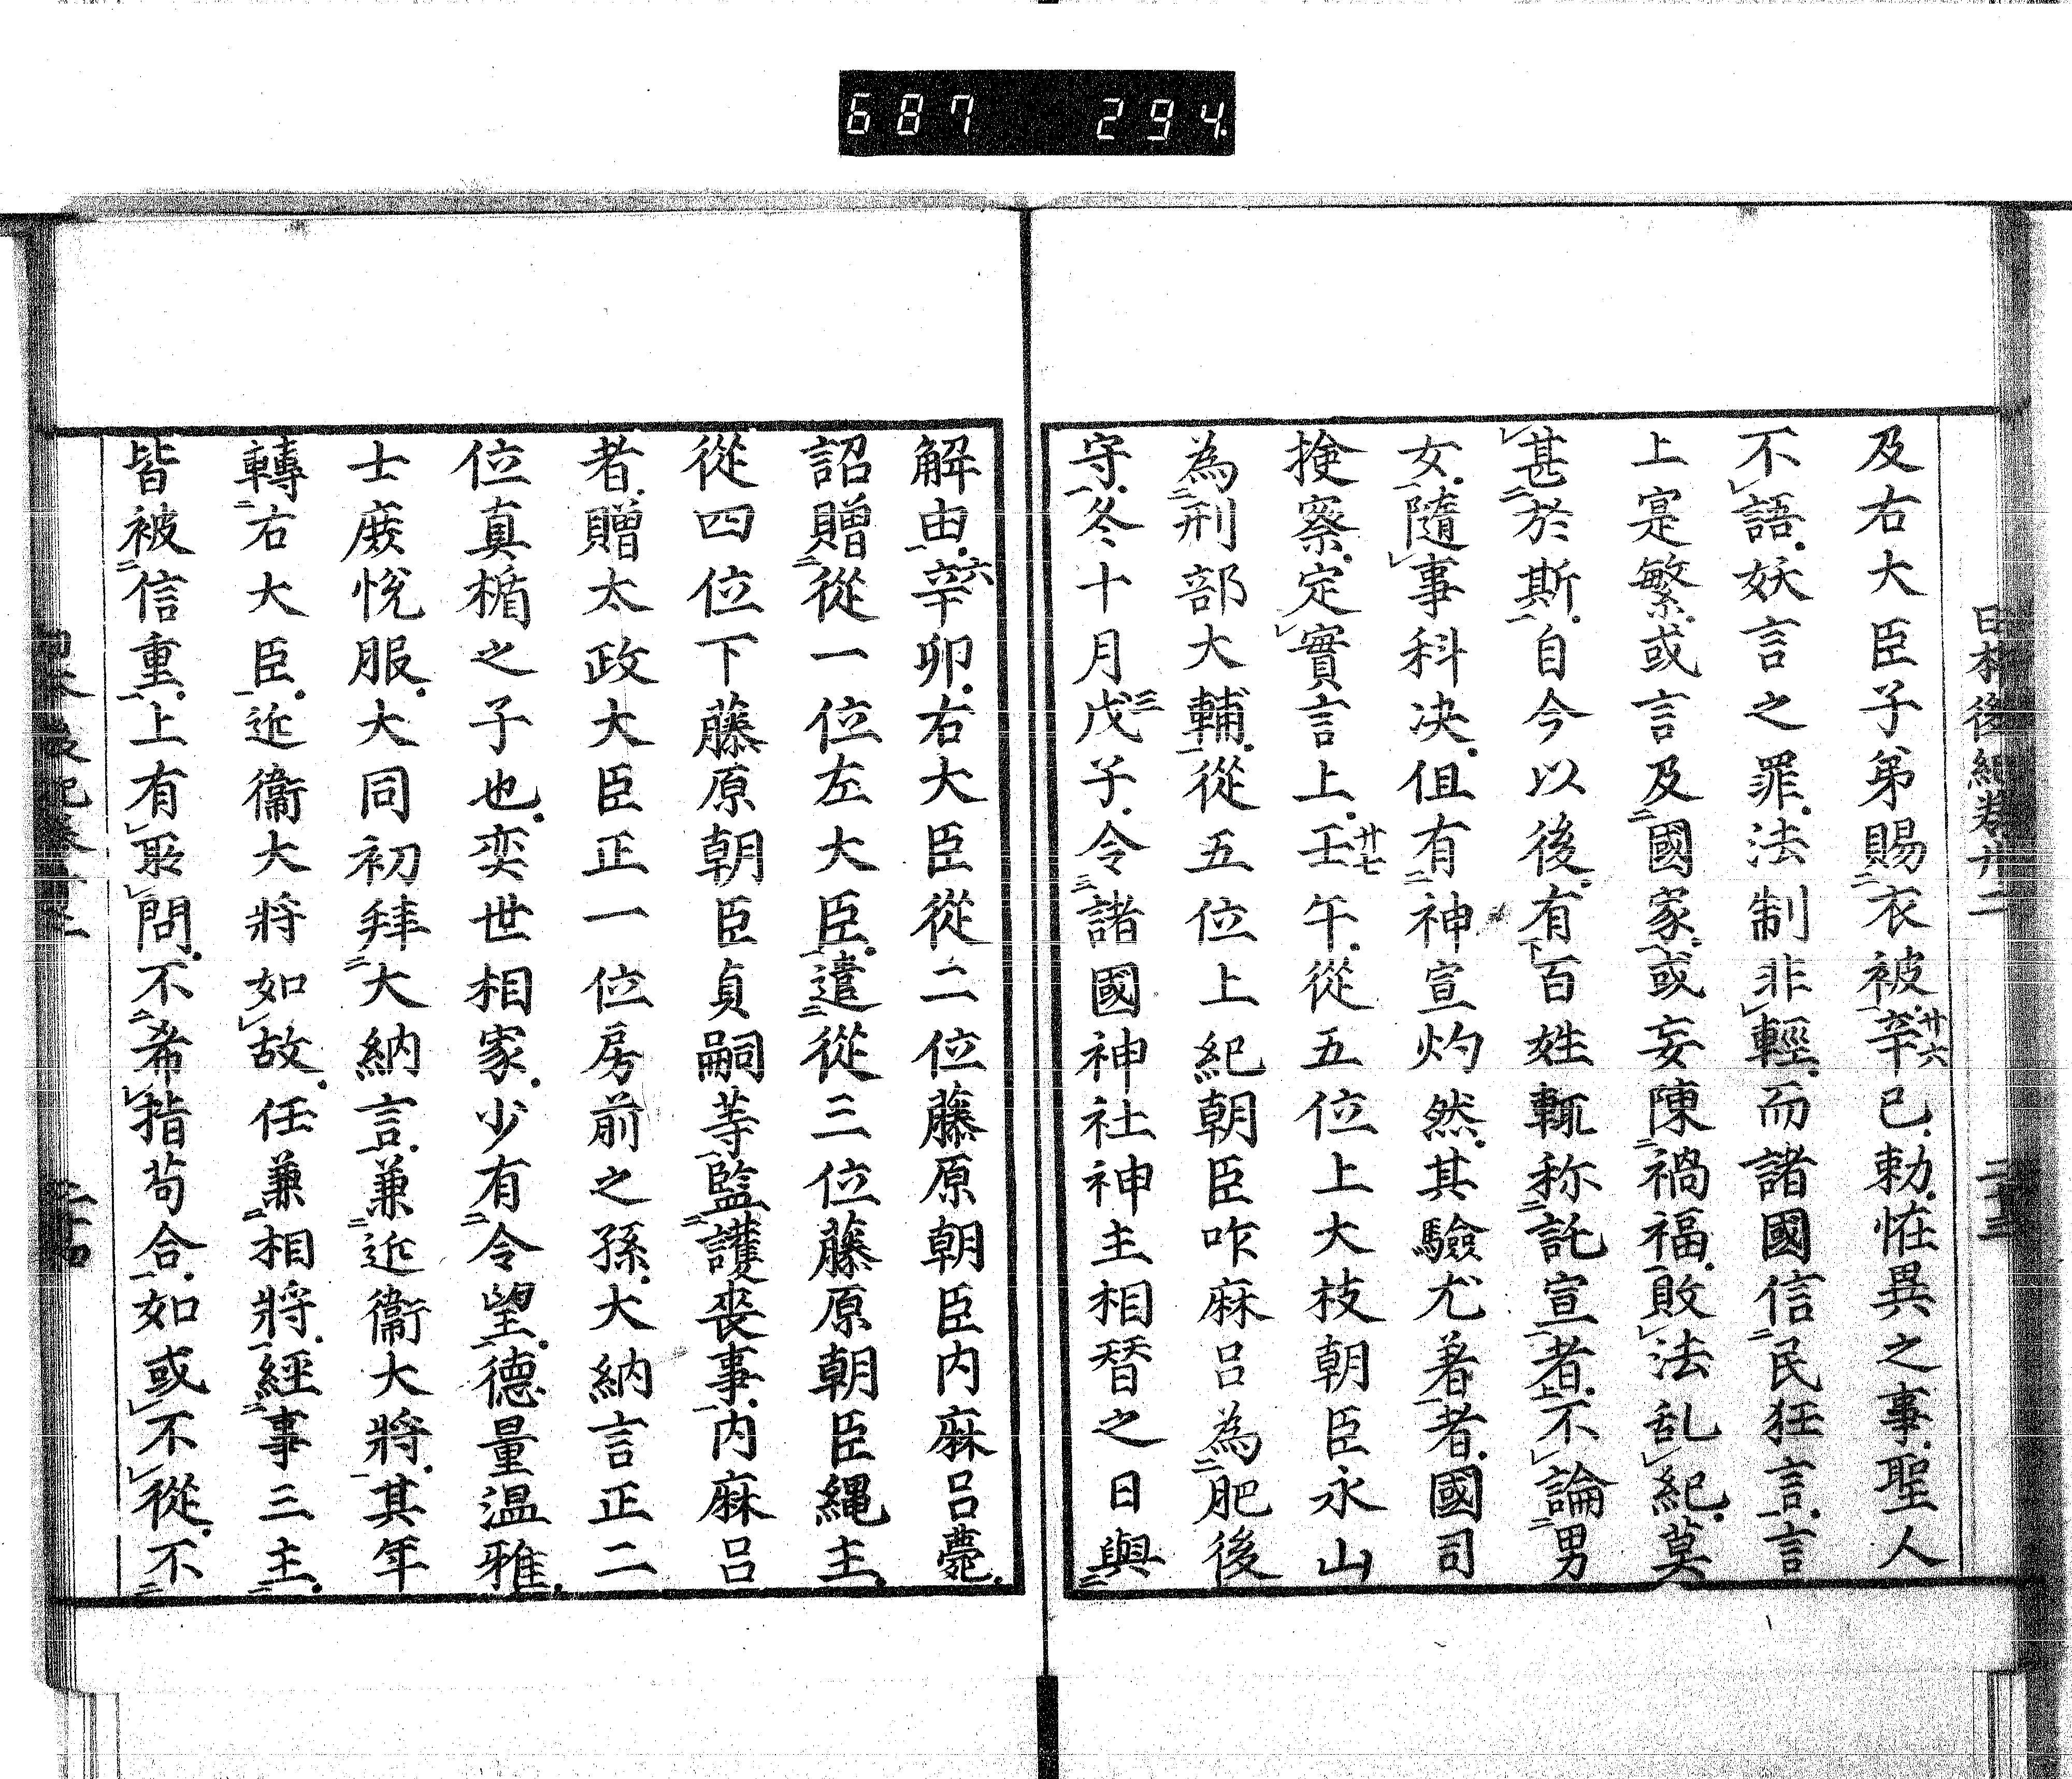 687 294
日本後紀卷廿二 二十三
及右大臣子弟賜衣被辛巳廿六勅恠異之事聖人
不語妖言之罪法制非輕而諸國信民狂言言
上寔繁或言及國家或妄陳禍福敗法乱紀莫
甚於斯自今以後有百姓輒称託宣者不論男
女隨事科决但有神宣灼然其驗尤著者國司
揀察定實言上壬午廿七從五位上大枝朝臣永山
為刑部大輔從五位上紀朝臣咋麻呂為肥後
守冬十月戊子三令諸國神社神主相替之日與
解由辛卯六右大臣從二位藤原朝臣内麻呂薨
詔贈從一位左大臣遣從三位藤原朝臣縄主
從四位下藤原朝臣貞嗣等監護喪事内麻呂
者贈太政大臣正一位房前之孫大納言正二
位真楯之子也奕世相家少有令望德量温雅
士庶悅服大同初拜大納言兼近衞大將其年
轉右大臣近衞大將如故任兼相將經事三主
皆被信重上有所問不希指苟合如或不從不